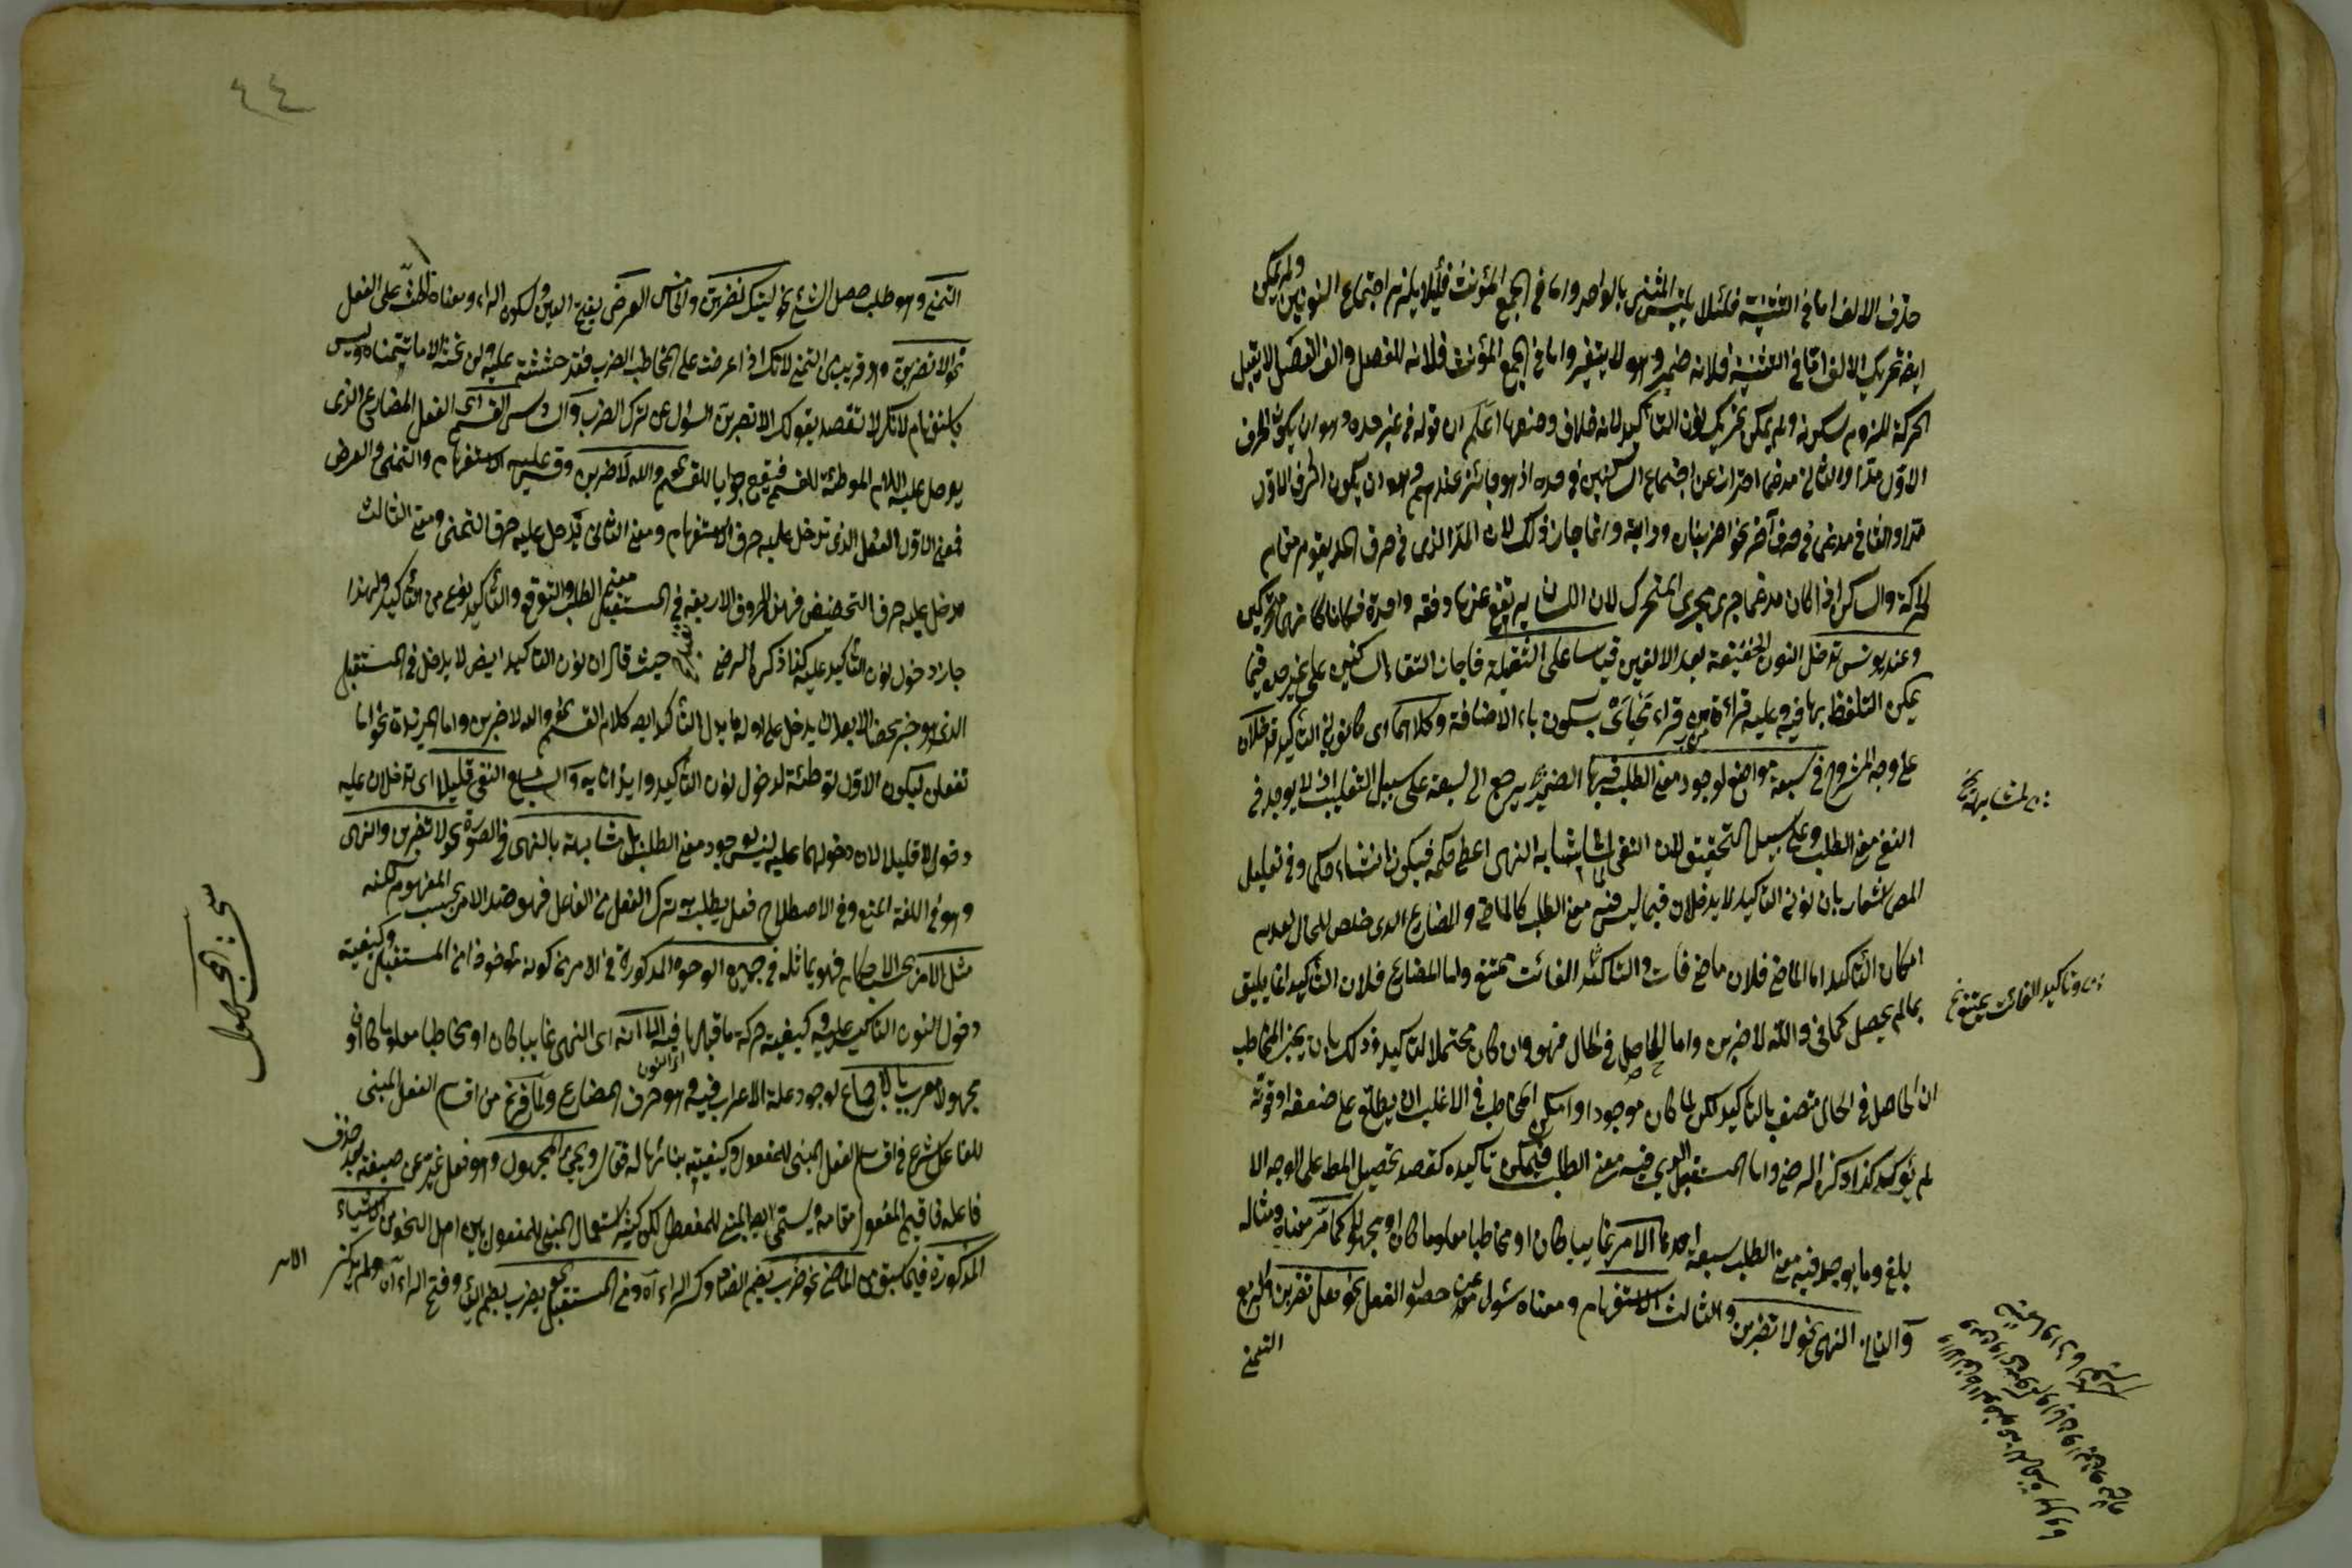 حذف الالف اما في التثنية فلئلا يلتبس المثنى بالواحد واما في الجمع المؤنث فلئلا يلزم اجتماع النونين ولم يمكن
ايضا تحريك الالف اما في التثنية فلانه ضمير وهو لا يتغير واما في الجمع المؤنث فلانه للفصل والف الفصل لا يقبل
الحركة للزوم سكونه ولم يمكن تحريك نون التأكيد لانه خلاف وضعها اعلم ان قوله في غير حده وهو ان يكون الحرف
الاول مدا والثاني مدغما احتراز عن اجتماع الساكنين في حده اذ هو جائز عندهم وهو ان يكون الحرف الاول
مدا والثاني مدغم في حرف آخر نحو اضربان ودابة وانما جاز ذلك لان المد الذي في حرف المد يقوم مقام
الحركة والساكن اذا كان مدغما جرى مجرى المتحرك لان اللسان يرتفع عنهما دفعة واحدة فكانا كانهما متحركين
وعند يونس تدخل النون الخفيفة بعد الالفين قياسا على الثقيلة فاجاز التقاء الساكنين على غير حده فيما
يمكن التلفظ بهما فيه وعليه قراءة من قراء محياي بسكون ياء الاضافة وكلاهما اي كلا نوني التأكيد تدخلان
على وجه المشروح في سبعة مواضع لوجود معنى الطلب فيها الضمير يرجع الى سبعة على سبيل التغليب اذ لا يوجد في
النفي معنى الطلب وعلى سبيل التحقيق لان النفي لما شابه النهي اعطى حكمه فيكون انشاء حكما وفي تعليل
المص اشعار بان نوني التأكيد لا يدخلان فيما ليس فيه معنى الطلب كالماضي والمضارع الذي خلص للحال لعدم
امكان التأكيد اما الماضي فلان ما مضى فات والتأكيد الفائت ممتنع واما المضارع فلان التأكيد انما يليق
بما لم يحصل كما في والله لاضربن واما الحاصل في الحال فهو وان كان محتملا للتأكيد وذلك بان يخبر المخاطب
ان الحاصل في الحال متصف بالتأكيد لكن لما كان موجودا وامكن المخاطب في الاغلب ان يطلع على ضعفه وقوته
لم يؤكد كذا ذكره الرضي واما المستقبل الذي فيه معنى الطلب فيمكن تأكيده كقصد تحصيل المط على الوجه الا
بلغ وما يوجد فيه معنى الطلب سبعة احدها الامر غايبا كان او مخاطبا معلوما كان او مجهولا كما مر معناه ومثاله
والثاني النهي نحو لا تضربن والثالث الاستفهام ومعناه سئول عن حصول الفعل نحو هل تضربن والرابع
التمني
لمشابهته
وتأكيد الفائت ممتنع
٤٤
التمني وهو طلب حصول الشيء نحو ليتك تضربن والخامس العرض بفتح العين وسكون الراء ومعناه الحث على الفعل
نحو الا تضربن وهو قريب من التمني لانك اذا عرضت على المخاطب الضرب فقد حثثته عليه ولن تحثه الا ما تتمناه وليس
باستفهام لانك لا تقصد بقولك الا تضربن السؤال عن ترك الضرب والسادس القسم اي الفعل المضارع الذي
يدخل عليه اللام الموطئة للقسم فيقع جوابا للقسم نحو والله لاضربن وقس عليه الاستفهام والتمني والعرض
فمعنى الاول الفعل الذي تدخل عليه حرف الاستفهام ومعنى الثاني يدخل عليه حرف التمني ومعنى الثالث
يدخل عليه حرف التحضيض فهذه الحروف الاربعة في المستقبل معنى الطلب والتوقع والتأكيد نوع من التأكيد ولهذا
جاز دخول نون التأكيد عليه كذا ذكره الرضي حيث قال ان نون التأكيد ايضا لا يدخل في المستقبل
الذي هو خبر محض الا بعد ان يدخل على اوله ما يدل على التأكيد ايضا كلام القسم نحو والله لاضربن واما المزيدة نحو اما
تفعلن ليكون الاول توطئة لدخول نون التأكيد وايذانا به والسابع النفي قليلا اي تدخلان عليه
دخولا قليلا لان دخولهما عليه ليس بوجود معنى الطلب بل لمشابهته بالنهي في الصورة نحو لا تضربن والنهي
وهو في اللغة المنع وفي الاصطلاح فعل يطلب به ترك الفعل من الفاعل فهو ضد الامر بحسب المفهوم لكنه
مثل الامر بحسب الاحكام فهو يماثله في جميع الوجوه المذكورة في الامر من كونه مأخوذا من المستقبل وكيفيته
دخول النون التأكيد عليه وكيفية حركة ما قبلها فيه الا انه اي النهي غايبا كان او مخاطبا معلوما كان او
مجهولا معرب بالاجماع لوجود علة الاعراب فيه وهو حرف المضارع ولما فرغ من اقسام الفعل المبني
للفاعل شرع في اقسام الفعل المبني للمفعول وكيفية بنائها له فقال ويجيء المجهول وهو فعل غير عن صيغته بعد حذف
فاعله فاقيم المفعول مقامه ويسمى ايضا المبني للمفعول لكن كثير استعمال المبني للمفعول بين اهل النحو من الاشياء
المذكورة فيما سبق من الماضي نحو ضرب بضم الضاد وكسر الراء آه ومن المستقبل نحو يضرب بضم الياء وفتح الراء آه ولم يذكر
الامر
مبحث المجهول